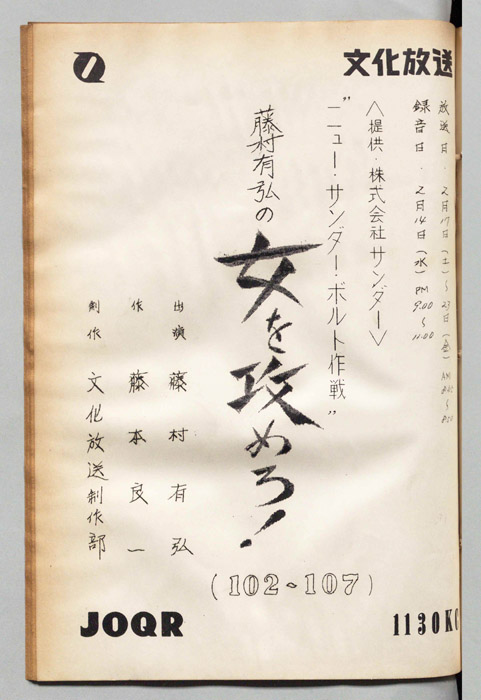 文化放送
放送日.2月17日(土)〜23日(金)
録音日.2月14日(水)PM 9:00〜11:00
〈提供・株式会社サンダー〉
"ニュー・サンダー・ボルト作戦"
藤村有弘の
女を攻めろ!
(102~107)
出演 藤村有弘
作 藤本良一
制作 文化放送制作部
JOQR
1130KC